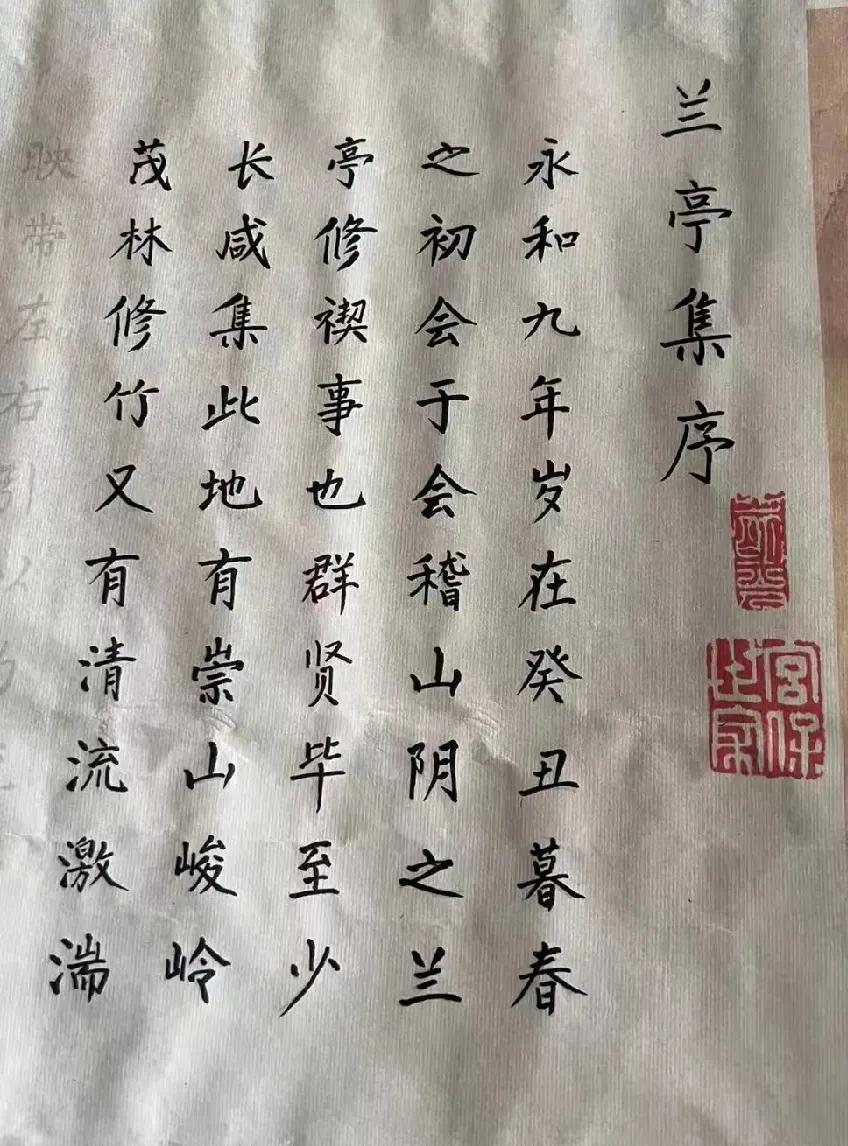 兰亭集序
永和九年岁在癸丑暮春
之初会于会稽山阴之兰
亭修禊事也群贤毕至少
长咸集此地有崇山峻岭
茂林修竹又有清流激湍
映带左右引以为
宫保之家